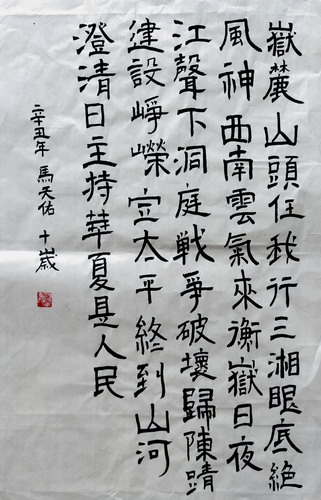 嶽麓山頭任我行三湘眼底絕
風神西南雲氣來衡嶽日夜
江聲下洞庭戦爭破壞歸陳靖
建設崢嶸定太平終到山河
澄清日主持華夏是人民
辛丑年 馬天佑 十歲